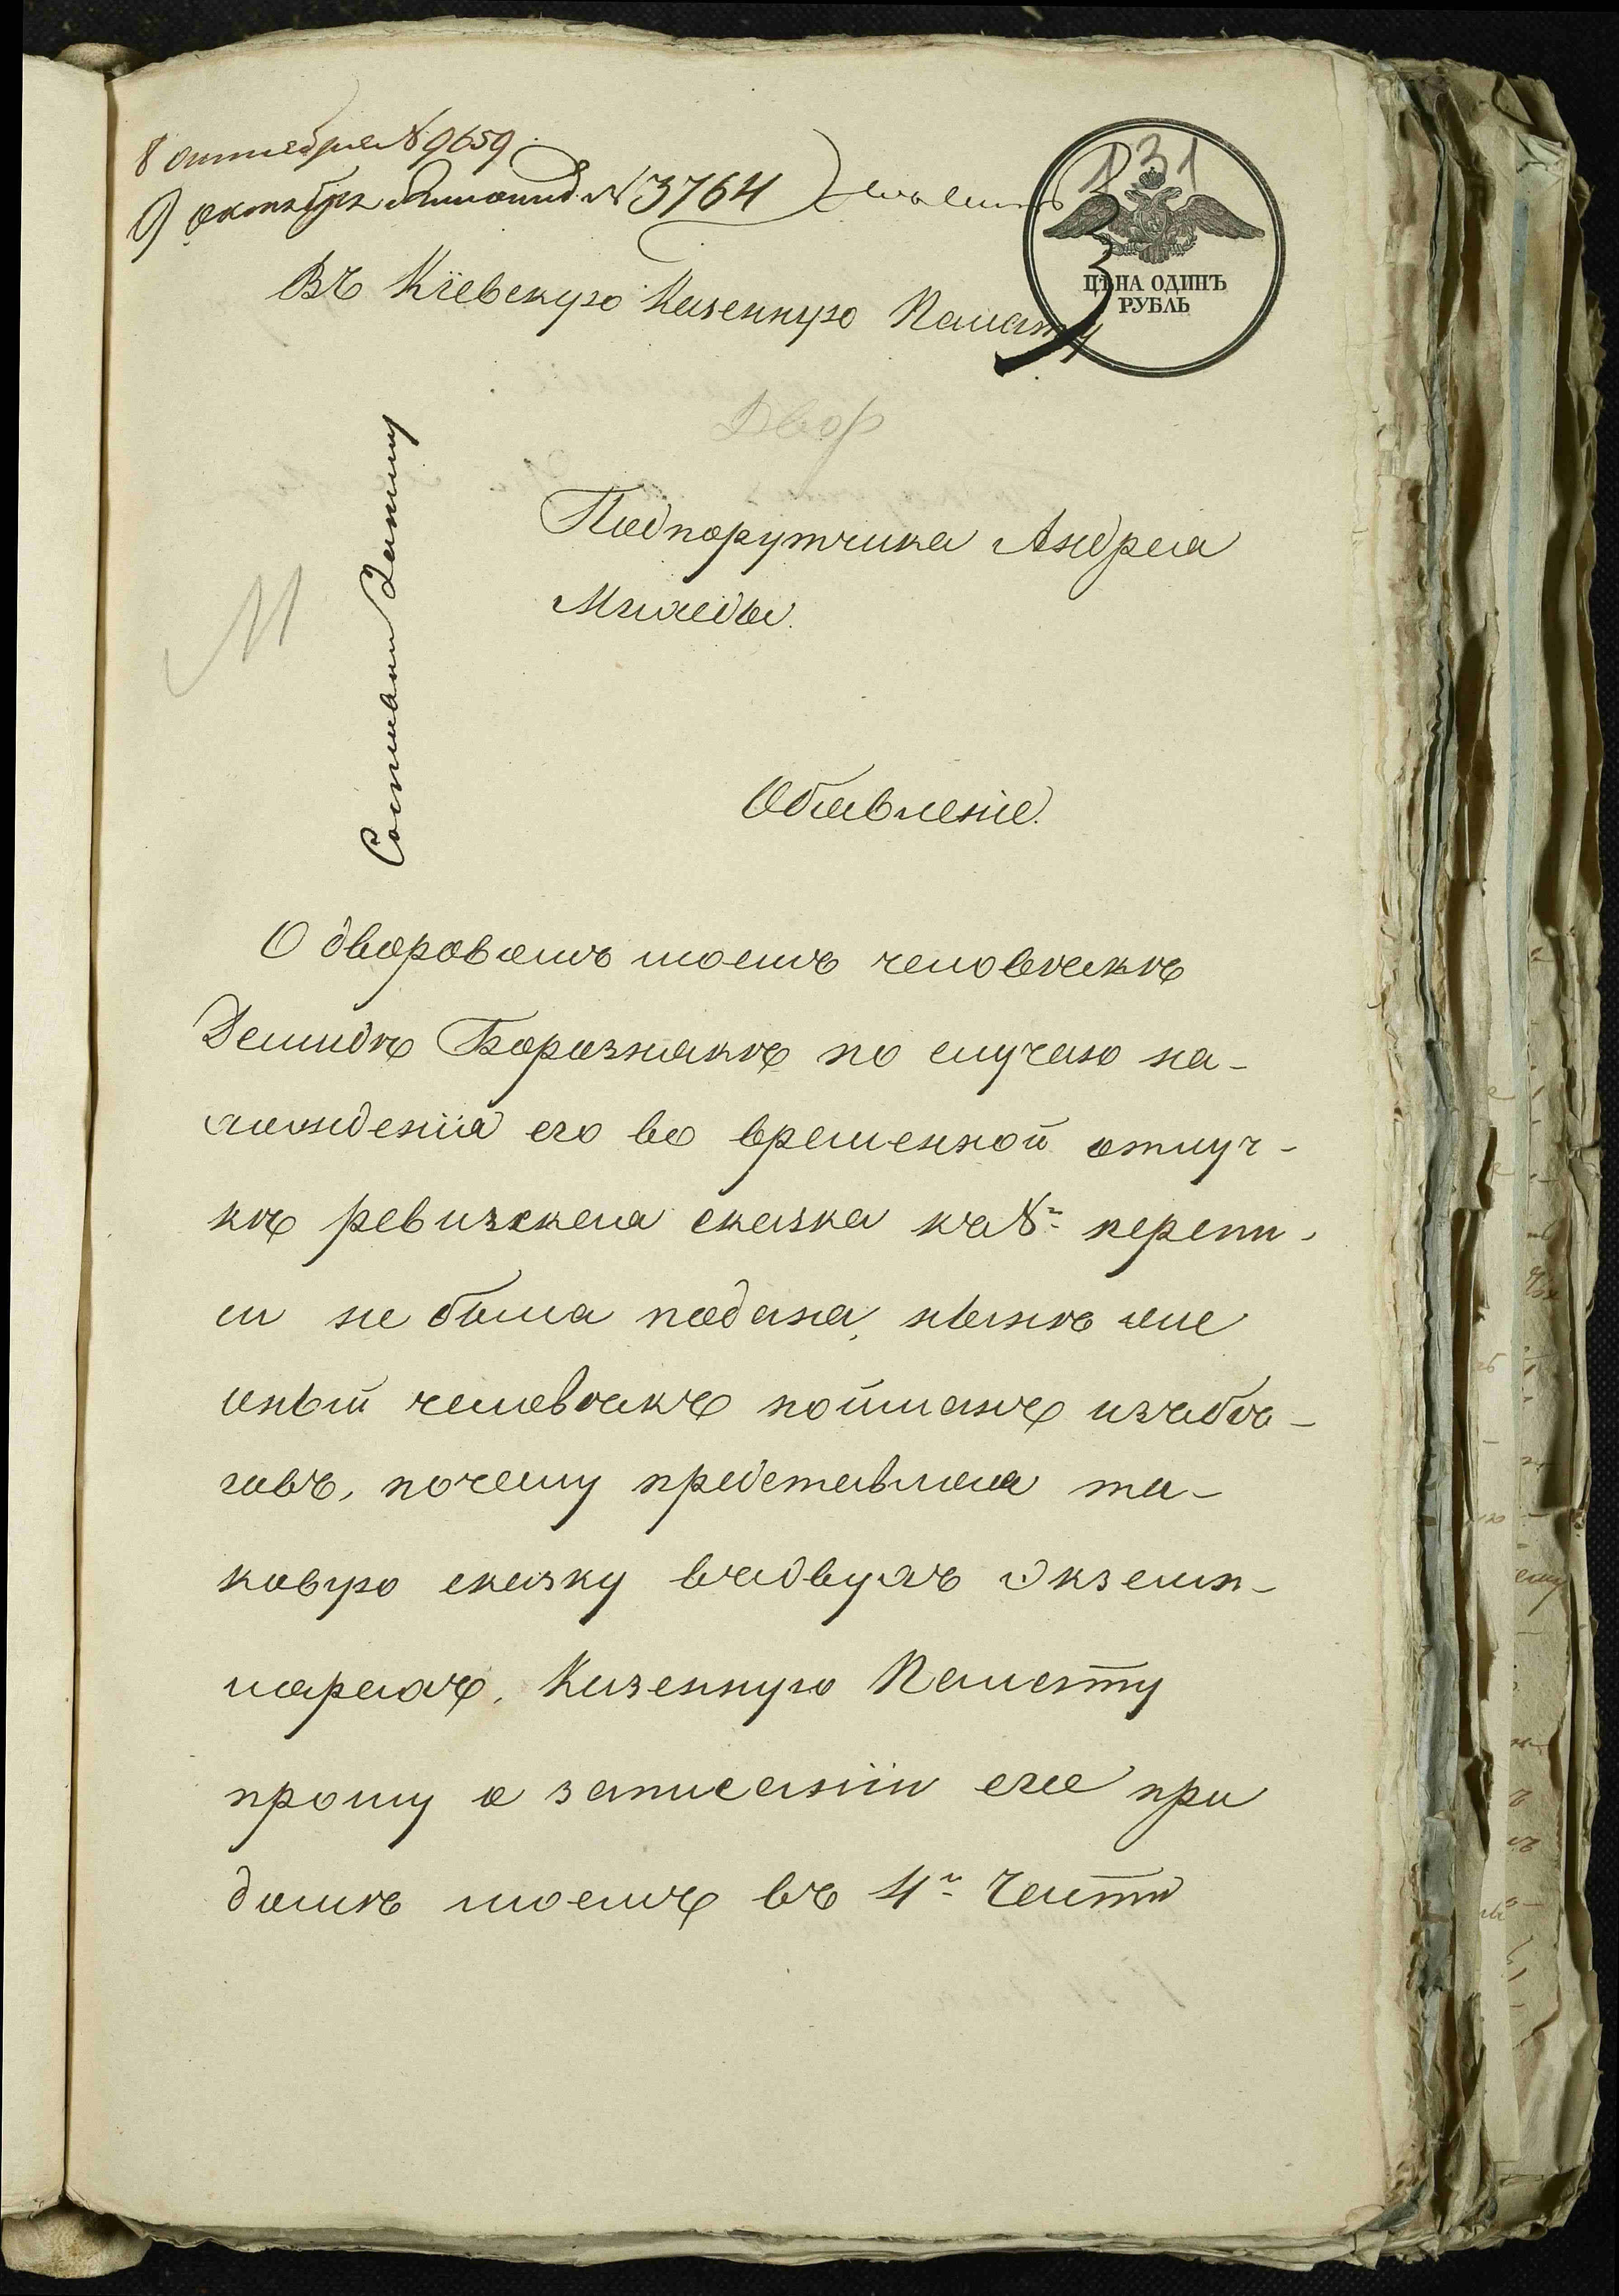 8 октября № 9659.
9 октября № 3764
131
3
ЦѢНА ОДИНЪ
РУБЛЬ
Въ Кіевскую Казенную Палату
Двор
Подпорутчика Андрея
Обявленіе.
О дворовомъ моемъ человѣкѣ
Демидѣ Борознякѣ по случаю на-
хожденія его во временной отлуч-
кѣ ревизская сказка къ 8й перепи-
си не была подана, нынѣ же
оный человѣкъ пойманъ изъ бѣ-
говъ, почему представляя та-
ковую сказку въ двухъ экземп-
лярахъ, Казенную Палату
прошу о записаніи его при
домѣ моемъ въ 4й Части